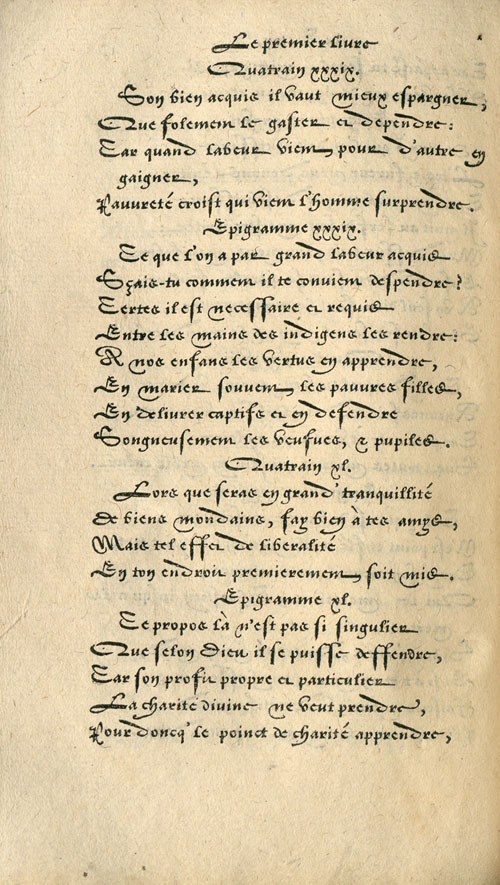 Le premier livre
Quatrain xxxix.
Son bien acquis il vaut mieux espargner,
Que folement le gaster et dependre:
Car quand labeur vient, pour d'autre en
gaigner,
Pauvreté croist qui vient l'homme surprendre.
Epigramme xxxix.
Ce que l'on a par grand labeur acquis
Sçais-tu comment il te convient despendre?
Certes il est necessaire et requis
Entre les mains des indigens les rendre:
A nos enfans les vertus en apprendre,
En marier souvent, les pauvres filles,
En delivrer captifs et en defendre
Songneusement les veufves, & pupiles.
Quatrain xl.
Lors que seras en grand' tranquillité
De biens mondains, fay bien à tes amys,
Mais tel effet de liberalité
En ton endroit premierement, soit mis.
Epigramme xl.
Ce propos là n'est pas si singulier
Que selon Dieu il se puisse deffendre,
Car son profit propre et particulier
La charité divine ne veut prendre,
Pour doncq' le poinct de charité apprendre,